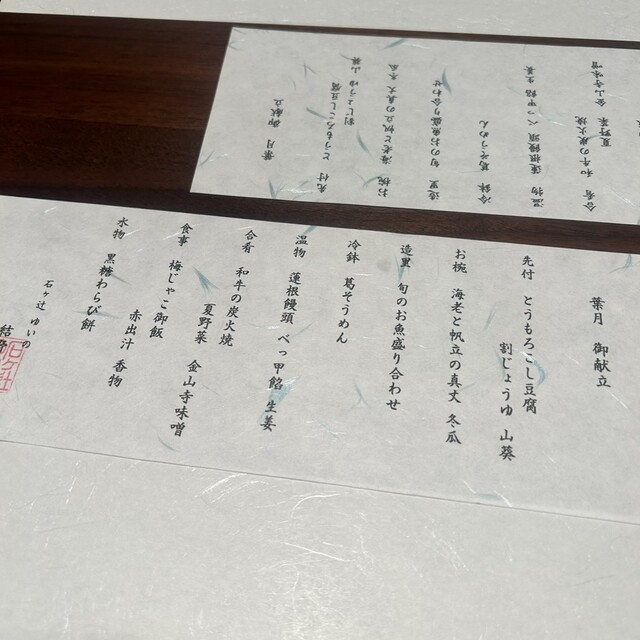 葉月 御献立
先付 とうもろこし豆腐
割じょうゆ 山葵
お椀 海老と帆立の真丈 冬瓜
造里 旬のお魚盛り合わせ
冷鉢 葛そうめん
温物 蓮根饅頭 べっ甲餡 生姜
合肴 和牛の炭火焼
夏野菜 金山寺味噌
食事 梅じゃこ御飯
赤出汁 香物
水物 黒糖わらび餅
石ヶ辻 ゆいの
葉月 御献立
先付 とうもろこし豆腐
割じょうゆ 山葵
お椀 海老と帆立の真丈 冬瓜
造里 旬のお魚盛り合わせ
冷鉢 葛そうめん
温物 蓮根饅頭 べっ甲餡 生姜
合肴 和牛の炭火焼
夏野菜 金山寺味噌